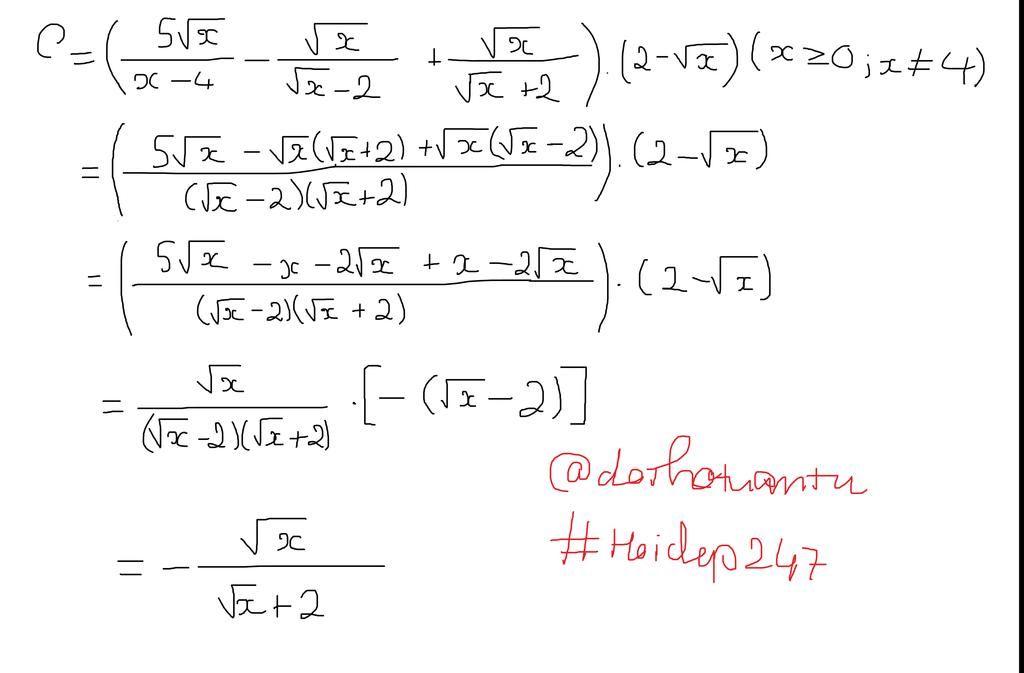 C = (5√x / (x − 4) − √x / (√x − 2) + √x / (√x + 2)) . (2 − √x) (x ≥ 0 ; x ≠ 4)
= ((5√x − √x(√x + 2) + √x(√x − 2)) / ((√x − 2)(√x + 2))) . (2 − √x)
= ((5√x − x − 2√x + x − 2√x) / ((√x − 2)(√x + 2))) . (2 − √x)
= √x / ((√x − 2)(√x + 2)) . [− (√x − 2)]
= − √x / (√x + 2)
#Hoidap247